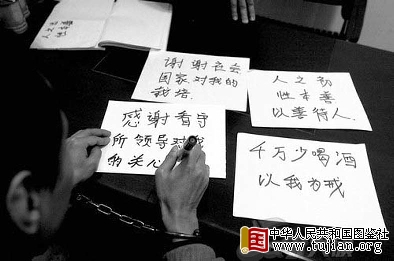 谢谢社会
国家对我的
栽培
人之初
性本善
以善待人.
感谢看守
所领导对我
的关心
千万少喝酒
以我为戒
中华人民共和国图鉴社
www.tujian.org